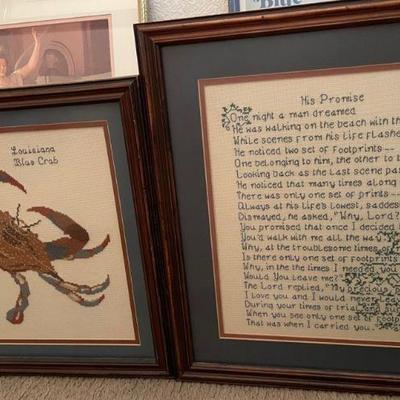 Blue
Louisiana
Blue Crab
His Promise
One night a man dreamed
He was walking on the beach with th
While scenes from his life flashe
He noticed two set of Footprints--
One belonging to him, the other to t
Looking back as the last scene pas
He noticed that many times along
There was only one set of prints--
Always at his life's lowest, saddes
Dismayed, he asked, "Why, Lord?
You promised that once I decided
You'd walk with me all the way.
Why, at the troublesome times of
Is there only one set of footprints
Why, in the times I needed you
Would You leave me?
The Lord replied, "My precious
I love you and I would never leave
During your times of trial and suf
When you see only one set of footp
That was when I carried you."